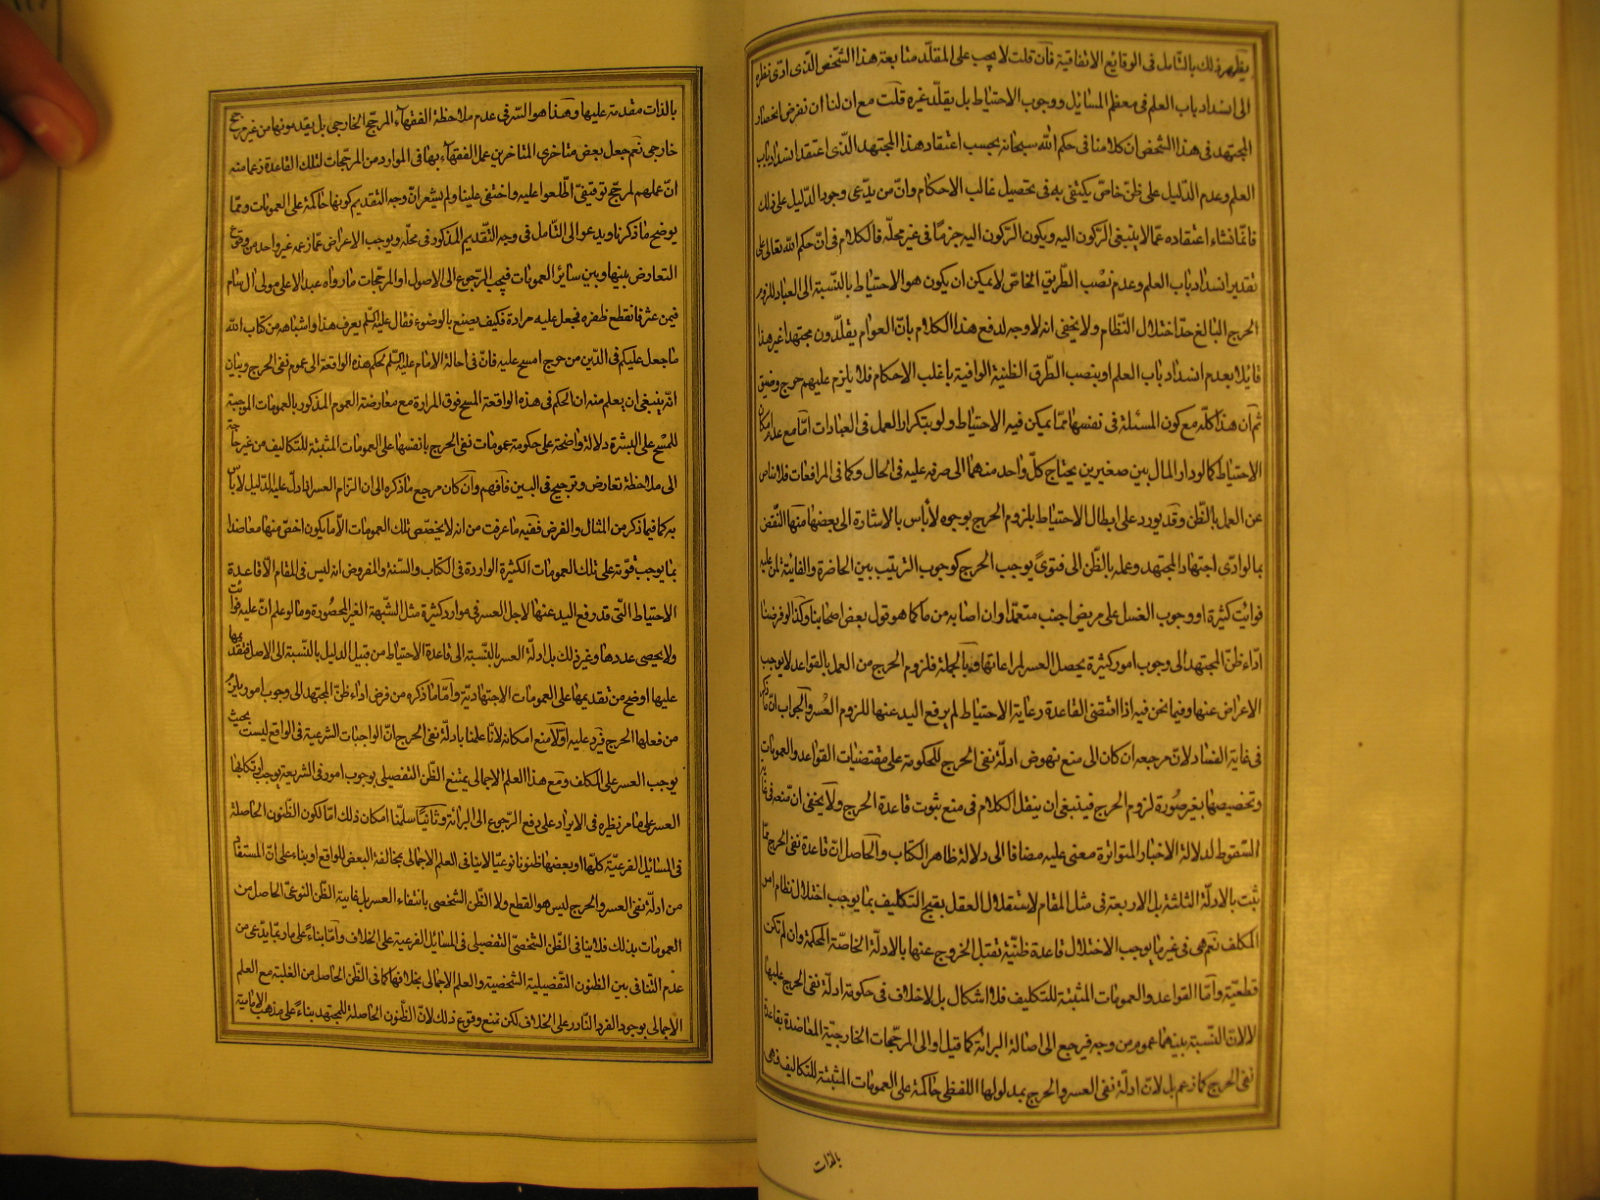 يظهر ذلك بالتامل فى الوقايع الاتفاقية فان قلت لا يجب على المقلد متابعة هذا الشخص الذى ادى نظره
الى انسداد باب العلم فى معظم المسائل ووجوب الاحتياط بل يقلد غيره قلت مع ان لنا ان نفرض انحصار
المجتهد فى هذا الشخص ان كلامنا فى حكم الله سبحانه بحسب اعتقاد هذا المجتهد الذى اعتقد انسداد باب
العلم وعدم الدليل على ظن خاص يكتفى به فى تحصيل غالب الاحكام وان من يدعى وجود الدليل على ذلك
فانما نشاء اعتقاده عما لا ينبغى الركون اليه ويكون الركون اليه جزما فى غير محله فالكلام فى ان حكم الله تعالى على
تقدير انسداد باب العلم وعدم نصب الطريق الخاص لا يمكن ان يكون هو الاحتياط بالنسبة الى العباد للزوم
الحرج البالغ حد اختلال النظام ولا يخفى انه لا وجه لدفع هذا الكلام بان العوام يقلدون مجتهدا غير هذا
قايلا بعدم انسداد باب العلم او بنصب الطرق الظنية الوافية باغلب الاحكام فلا يلزم عليهم حرج وضيق
ثم ان هذا كله مع كون المسئلة فى نفسها مما يمكن فيه الاحتياط ولو بتكرار العمل فى العبادات اما مع عدم امكان
الاحتياط كما لو دار المال بين صغيرين يحتاج كل واحد منهما الى صرفه عليه فى الحال وكما فى المرافعات فلا مناص
عن العمل بالظن وقد يورد على ابطال الاحتياط بلزوم الحرج بوجوه لا باس بالاشارة الى بعضها منها النقض
بما لو ادى اجتهاد المجتهد وعمله بالظن الى فتوى يوجب الحرج كوجوب الترتيب بين الحاضرة والفايتة لمن عليه
فوايت كثيرة او وجوب الغسل على مريض اجنب متعمدا وان اصابه من ما كما هو قول بعض اصحابنا وكذا لو فرضنا
اداء ظن المجتهد الى وجوب امور كثيرة يحصل العسر لمراعاتها وبالجملة فلزوم الحرج من العمل بالقواعد لا يوجب
الاعراض عنها وفيما نحن فيه اذا اقتضى القاعدة رعاية الاحتياط لم يرفع اليد عنها للزوم العسر والجواب ان ما ذكر
فى غاية الفساد لان مرجعه ان كان الى منع نهوض ادلة نفى الحرج للحكومة على مقتضيات القواعد والعمومات
وتخصيصها بغير صورة لزوم الحرج فينبغى ان ينقل الكلام فى منع ثبوت قاعدة الحرج ولا يخفى ان منعه فى غاية
السقوط لدلالة الاخبار المتواترة معنى عليه مضافا الى دلالة ظاهر الكتاب والحاصل ان قاعدة نفى الحرج مما
ثبت بالادلة الثلثة بل الاربعة فى مثل المقام لاستقلال العقل بقبح التكليف بما يوجب اختلال نظام امر
المكلف نعم هى فى غير ما يوجب الاختلال قاعدة ظنية تقبل الخروج عنها بالادلة الخاصة المحكمة وان لم تكن
قطعية واما القواعد والعمومات المثبتة للتكليف فلا اشكال بل لا خلاف فى حكومة ادلة نفى الحرج عليها
لا لان النسبة بينهما عموم من وجه فيرجع الى اصالة البرائة كما قيل او الى المرجحات الخارجية المعاضدة بقاعدة
نفى الحرج كما زعم بل لان ادلة نفى العسر والحرج بمدلولها اللفظى حاكمة على العمومات المثبتة للتكاليف فهى
بالذات
بالذات مقدمة عليها وهذا هو السر فى عدم ملاحظة الفقهاء المرجح الخارجى بل يقدمونها من غير مرجح
خارجى نعم جعل بعض متاخرى المتاخرين عمل الفقهاء بها فى الموارد من المرجحات لتلك القاعدة زعما منه
ان عملهم لمرجح توقيفى اطلعوا عليه واختفى علينا ولم يشعر ان وجه التقديم كونها حاكمة على العمومات ومما
يوضح ما ذكرنا ويدعو الى التامل فى وجه التقديم المذكور فى محله ويوجب الاعراض عما زعمه غير واحد من وقوع
التعارض بينها وبين ساير العمومات فيجب الرجوع الى الاصول او المرجحات ما رواه عبد الاعلى مولى ال سام
فيمن عثر فانقطع ظفره فجعل عليه مرارة فكيف يصنع بالوضوء فقال عليه السلم يعرف هذا واشباهه من كتاب الله
ما جعل عليكم فى الدين من حرج امسح عليه فان فى احالة الامام عليه السلم لحكم هذه الواقعة الى عموم نفى الحرج وبيان
انه ينبغى ان يعلم منه ان الحكم فى هذه الواقعة المسح فوق المرارة مع معارضة العموم المذكور بالعمومات الموجبة
للمسح على البشرة دلالة واضحة على حكومة عمومات نفى الحرج بانفسها على العمومات المثبتة للتكاليف من غير حاجة
الى ملاحظة تعارض وترجيح فى البين فافهم وان كان مرجع ما ذكره الى ان التزام العسر اذا دل عليه الدليل لا باس
به كما فيما ذكر من المثال والفرض ففيه ما عرفت من انه لا يخصص تلك العمومات الا ما يكون اخص منها معاضدا
بما يوجب قوته على تلك العمومات الكثيرة الواردة فى الكتاب والسنة والمفروض انه ليس فى المقام الا قاعدة
الاحتياط التى قد رفع اليد عنها لاجل العسر فى موارد كثيرة مثل الشبهة الغير المحصورة وما لو علم ان عليه فوائت
ولا يحصى عددها وغير ذلك بل ادلة العسر بالنسبة الى قاعدة الاحتياط من قبيل الدليل بالنسبة الى الاصل فتقديمها
عليها اوضح من تقديمها على العمومات الاجتهادية واما ما ذكره من فرض اداء ظن المجتهد الى وجوب امور يلزم
من فعلها الحرج فيرد عليه اولا منع امكانه لانا علمنا بادلة نفى الحرج ان الواجبات الشرعية فى الواقع ليست بحيث
يوجب العسر على المكلف ومع هذا العلم الاجمالى يمتنع الظن التفصيلى بوجوب امور فى الشريعة يوجب ارتكابها
العسر على ما مر نظيره فى الايراد على دفع الرجوع الى البرائة وثانيا سلمنا امكان ذلك اما لكون الظنون الحاصلة
فى المسائل الفرعية كلها او بعضها ظنونا نوعيا لا ينافى العلم الاجمالى بمخالفة البعض للواقع او بناء على ان المستفاد
من ادلة نفى العسر والحرج ليس هو القطع ولا الظن الشخصى بانتفاء العسر بل غايته الظن النوعى الحاصل من
العمومات بذلك فلا ينافى الظن الشخصى التفصيلى فى المسائل الفرعية على الخلاف واما بناء على ما ربما يدعى من
عدم التنافى بين الظنون التفصيلية الشخصية والعلم الاجمالى بخلافها كما فى الظن الحاصل من الغلبة مع العلم
الاجمالى بوجود الفرد النادر على الخلاف لكن نمنع وقوع ذلك لان الظنون الحاصلة للمجتهد بناء على مذهب الامامية